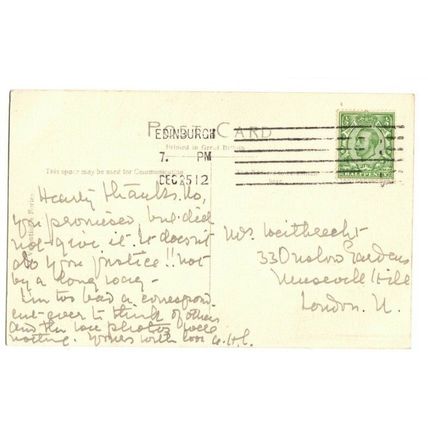 POST CARD
EDINBURGH
Printed in Great Britain
7. PM
DEC 25 12
This space may be used for Communication
HALFPENNY
Hearty thanks. No,
you promised, but did
not give it. It doesn't
do you justice!! not
by a long way -
I'm too bad a correspon
ent ever to think of others
and the love photos
nothing. Yours with love
Mrs Weitbrecht
33 Onslow Gardens
Muswell Hill
London. N.